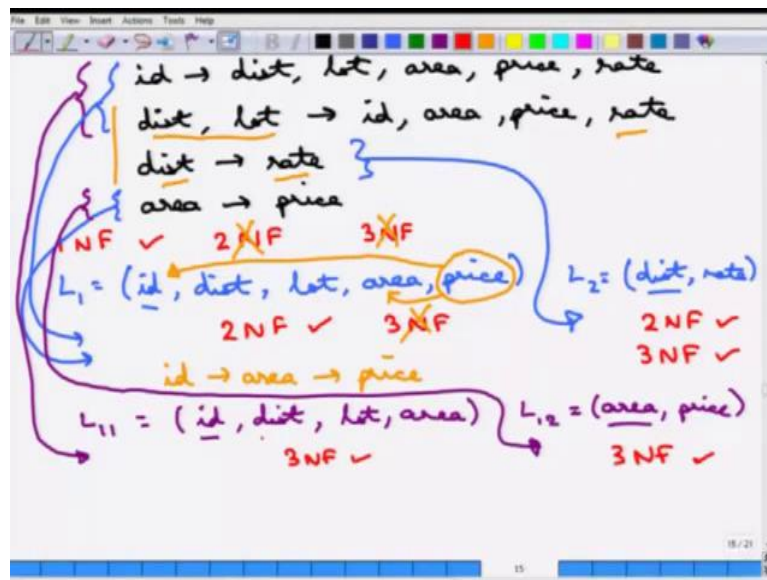 File Edit View Insert Actions Tools Help
id → dist, lot, area, price, rate
dist, lot → id, area, price, rate
dist → rate
area → price
1NF ✓ 2NF 3NF
L₁ = (id, dist, lot, area, price) L₂ = (dist, rate)
2NF ✓ 3NF 2NF ✓
3NF ✓
id → area → price
L₁₁ = (id, dist, lot, area) L₁₂ = (area, price)
3NF ✓ 3NF ✓
15/21
15